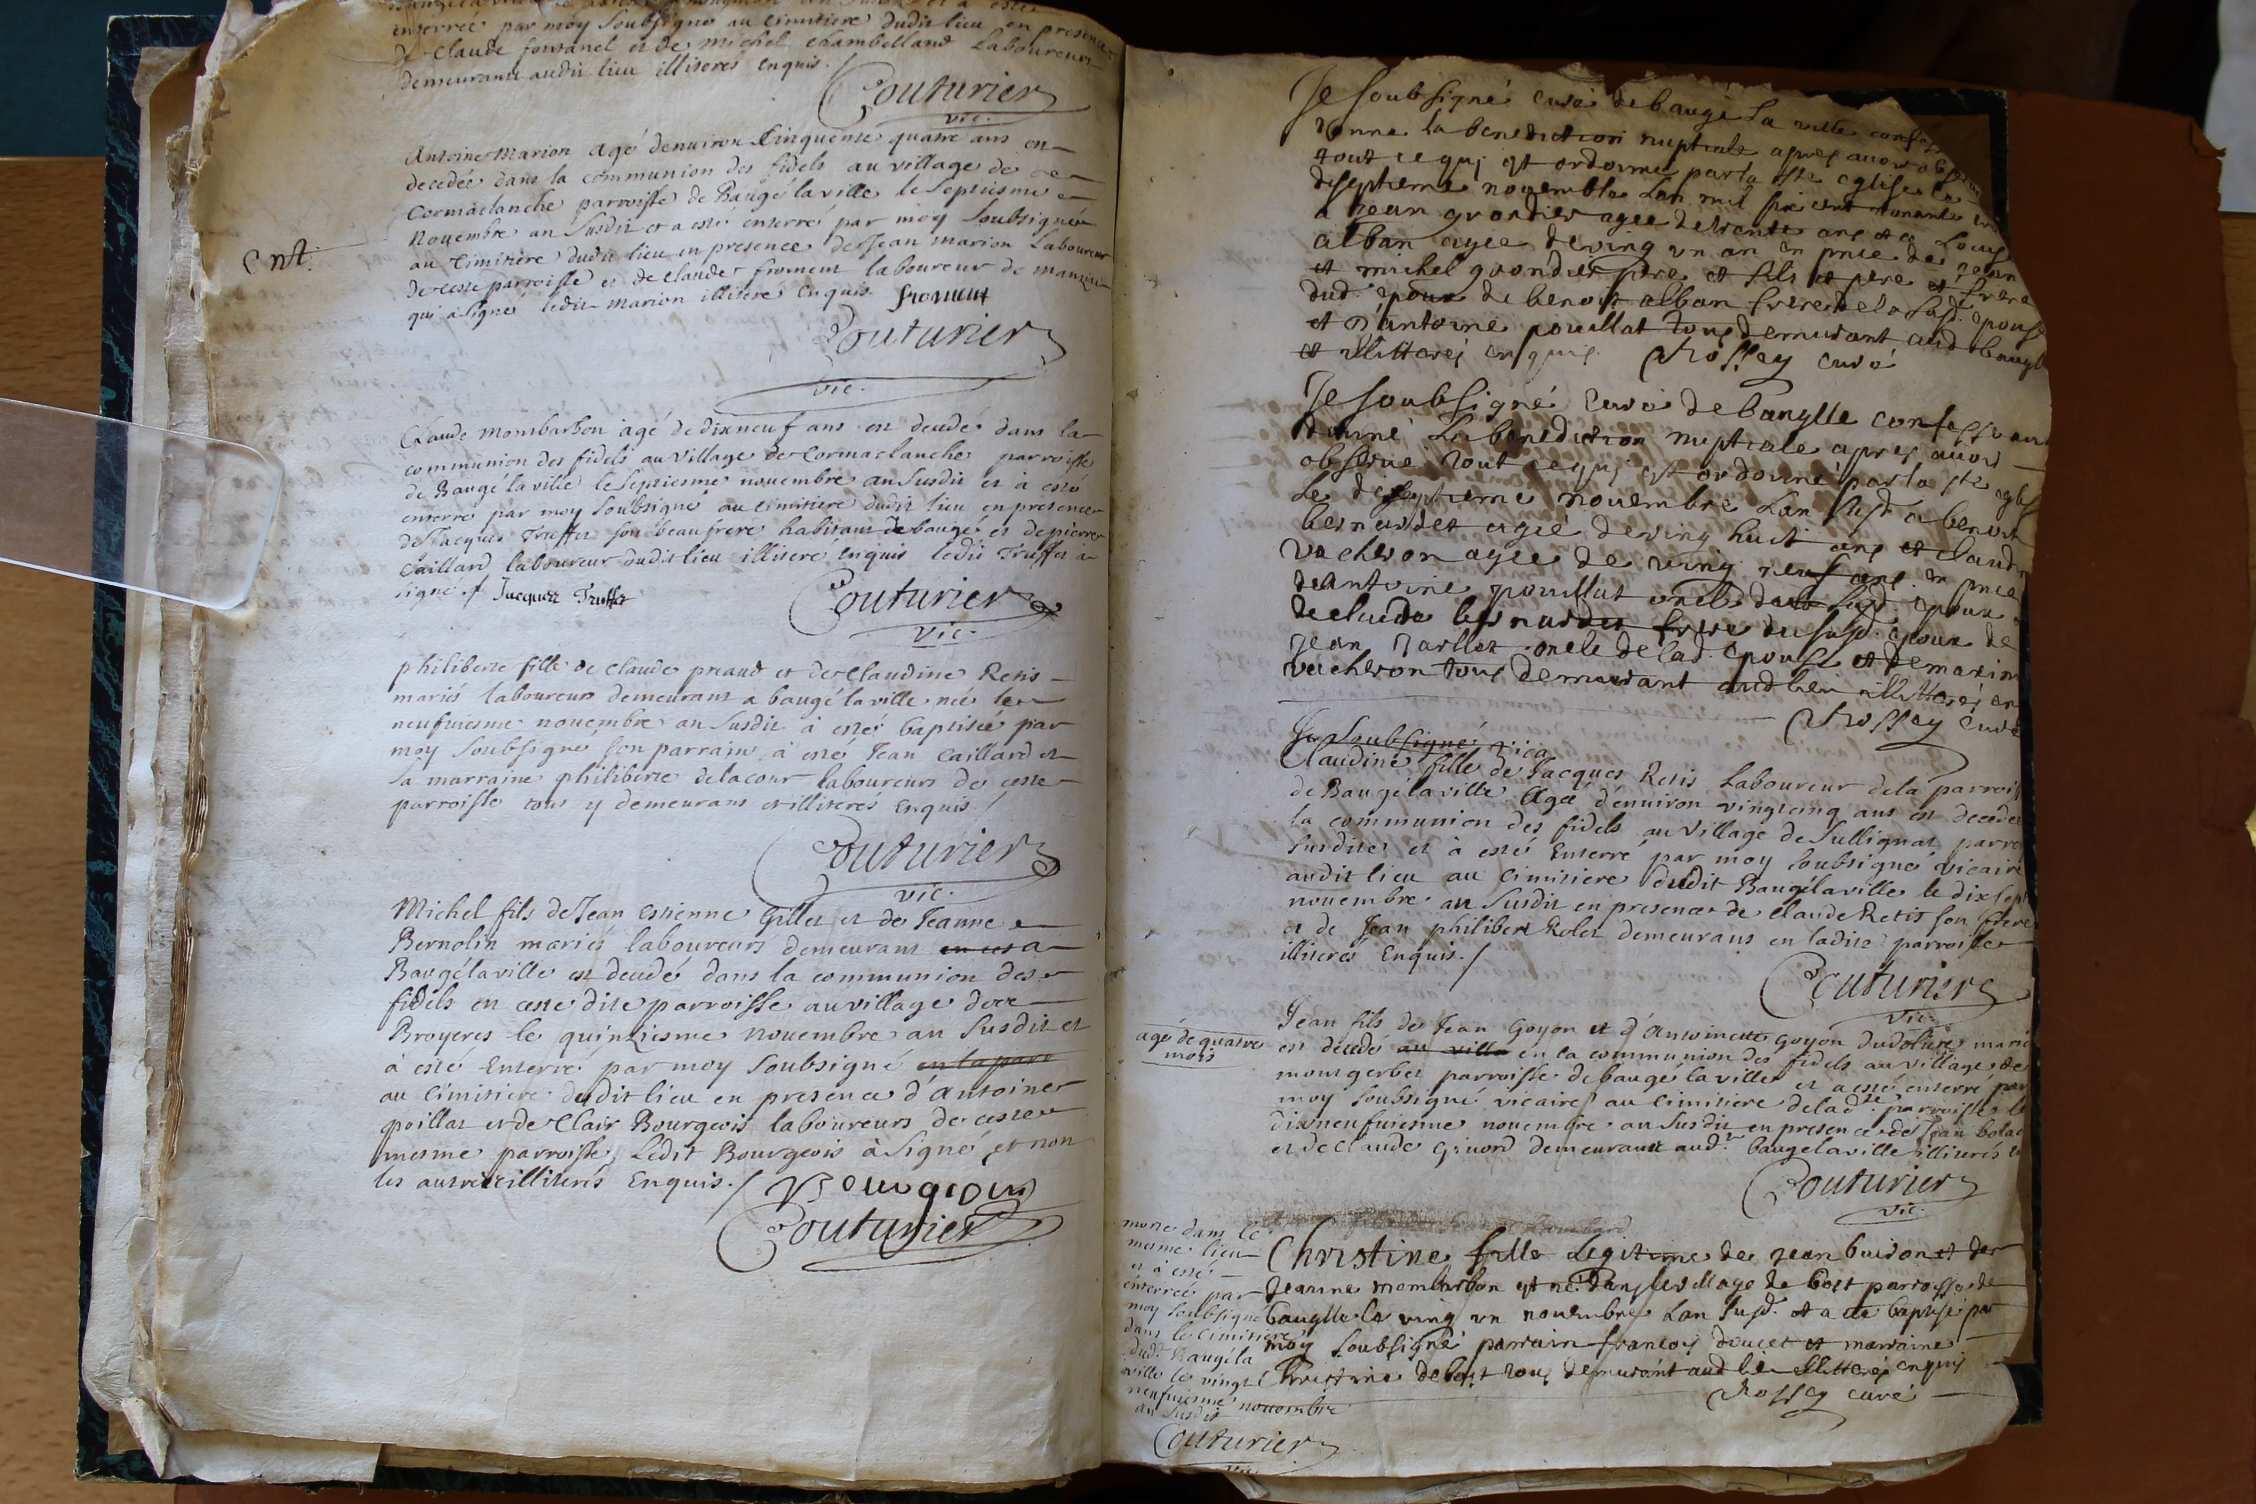 enterrée par moy soubsigné au cimitiere dudit lieu en presence
de Claude fontanel et de michel chambelland Laboureurs
demeurants audit lieu illiterés enquis.
Couturier
vic.
Ent.
Antoine Marion agé denuiron Cinquente quatre ans est
decedée dans la communion des fidels au village de
Cormaclanche parroisse de Baugé la ville le septiesme
Nouembre an susdit et a esté enterré par moy soubsigné
au cimitiere dudit lieu en presence de Jean marion Laboureur
de ceste parroisse et de claude froment laboureur de
qui a signé ledit marion illiteré enquis froment
Couturier
vic.
Claude mombarbon agé de dixneuf ans est decedé dans la
communion des fidels au village de Cormaclanche parroisse
de Baugé la ville le septiesme nouembre an susdit et à esté
enterré par moy soubsigné au cimitiere dudit lieu en presence
de Jacques Truffet son beau frere habitant de baugé et de pierre
Caillard laboureur dudit lieu illiteré enquis ledit Truffet a
signé./ Jacques Truffet
Couturier
vic.
philiberte fille de Claude preaud et de Claudine Retis
mariés laboureurs demeurans a baugé la ville née le
neufuiesme nouembre an susdit à esté baptisée par
moy soubsigné son parrain à esté Jean Caillard et
sa marraine philiberte delacour laboureurs de ceste
parroisse tous y demeurans et illiterés enquis./
Couturier
vic.
Michel fils de Jean estienne Gillet et de Jeanne
Bernolin mariés laboureurs demeurant a
Baugé la ville est decedé dans la communion des
fidels en ceste dite parroisse au village de
Broyeres le quinziesme nouembre an susdit et
à esté enterré par moy soubsigné en la par
au cimitiere dudit lieu en presence d'Antoine
poillat et de Clair Bourgeois laboureurs de ceste
mesme parroisse, Ledit Bourgeois à signé et non
les autres illiterés Enquis./ Bourgeois
Couturier
Je soubsigné curé de baugé la ville confesse
donné la benediction nuptiale apres auoir
tout ce qui est ordonné par la ste eglise le
deseptieme nouembre Lan mil six cent nonante
a jean grondier agee de trente ans et a
alban agee deving vn an en pnce de jean
et michel grondier pere et fils et pere et frere
dud. epoux de benoit alban frere de la susd. epouse
et d'antoine pouillat tous demurant aud baugé
et illitterés enquis. Rossay curé
Je soubsigné curé de bauglle confesse auoir
donné la benediction nuptiale apres auoir
obserué tout ce qui est ordonné par la ste eglise
Le deseptieme nouembre Lan susd. a benoit
bernardet agee deving huit ans et claudine
vacheron agee de ving neuf ans en pnce
de antoine pouillat oncle dud susd. epoux
de claude bernardet frere du susd. epoux de
jean oncle de lad. epouse et de
vacheron tous demurant aud lieu illitterés en
Rossay curé
Je soubsigné vica
Claudine fille de Jacques Retis Laboureur dela parroisse
de Baugé la ville Agée d'enuiron vingtcinq ans est decedée
la communion des fidels au village de Sullignat parro
susdite et à esté Enterré par moy soubsigné vicaire
audit lieu au cimitiere dudit Baugélaville le dixsept
nouembre an susdit en presence de claude Retis son frere
et de Jean philibert Rolet demeurans en ladite parroisse
illiterés Enquis./
Couturier
vic.
agé de quatre
mois
Jean fils de Jean Goyon et d'Antoinette Goyon dudolure mariés
est decedé au villa en la communion des fidels au village de
montgerbet parroisse de baugé la ville et a esté enterré par
moy soubsigné vicaire au cimitiere de lad.te parroisse le
dixneufuiesme nouembre an susdit en presence de Jean
et de Claude Giuord demeurant aud.t baugelaville illiterés
Couturier
vic.
Christine fille legitime de jean buiron et de
jeanne mombarbon est né dans le village de bost parroisse de
bauglle le ving vn nouembre Lan susd. et a ete baptisé par
moy soubsigné parrain francois doucet et marraine
Christine de bost tous demurant aud lieu illitterés enquis
Rossay curé
morte dans le
mesme lieu
et à esté
enterrée par
moy soubsigné
dans le cimitiere
dud.t Baugéla
ville le vingt
neufuiesme nouembre
an susdit
Couturier
vic.